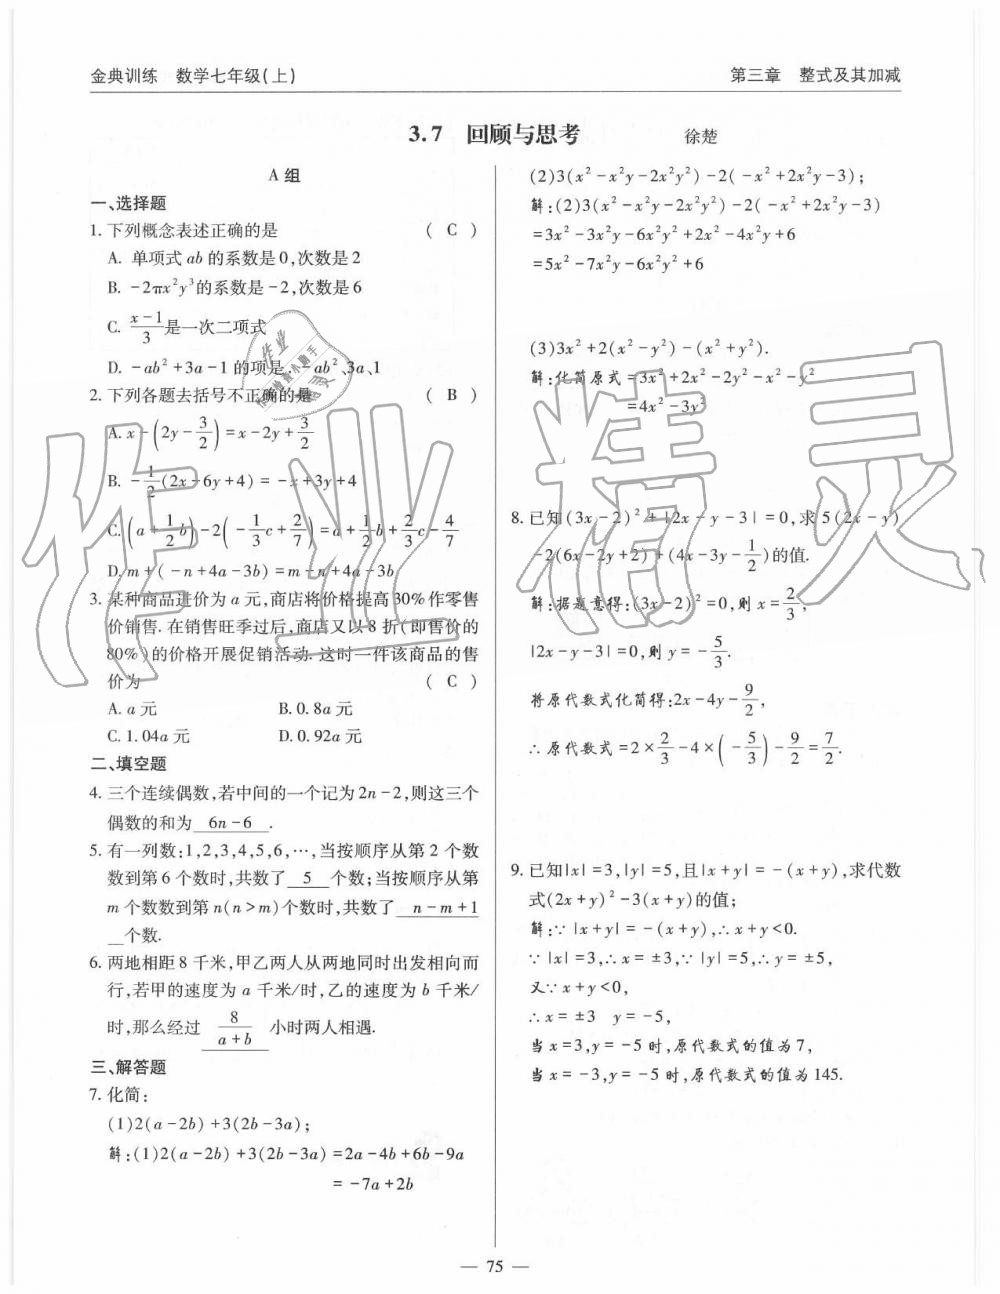 金典训练 数学七年级(上)
第三章 整式及其加减
3.7 回顾与思考 徐楚
A 组
一、选择题
1. 下列概念表述正确的是 ( C )
A. 单项式 ab 的系数是 0,次数是 2
B. -2πx²y³的系数是-2,次数是 6
C. (x-1)/3 是一次二项式
D. -ab²+3a-1 的项是 -ab²、3a、1
2. 下列各题去括号不正确的是 ( B )
A. x-(2y-3/2)=x-2y+3/2
B. -1/2(2x-6y+4)=-x+3y+4
C. (a+1/2b)-2(-1/3c+2/7)=a+1/2b+2/3c-4/7
D. m+(-n+4a-3b)=m-n+4a-3b
3. 某种商品进价为 a 元,商店将价格提高 30%作零售
价销售. 在销售旺季过后,商店又以 8 折(即售价的
80%)的价格开展促销活动. 这时一件该商品的售
价为 ( C )
A. a 元 B. 0.8a 元
C. 1.04a 元 D. 0.92a 元
二、填空题
4. 三个连续偶数,若中间的一个记为 2n-2,则这三个
偶数的和为 6n-6 .
5. 有一列数:1,2,3,4,5,6,…,当按顺序从第 2 个数
数到第 6 个数时,共数了 5 个数;当按顺序从第
m 个数数到第 n(n>m)个数时,共数了 n-m+1
个数.
6. 两地相距 8 千米,甲乙两人从两地同时出发相向而
行,若甲的速度为 a 千米/时,乙的速度为 b 千米/
时,那么经过 8/(a+b) 小时两人相遇.
三、解答题
7. 化简:
(1)2(a-2b)+3(2b-3a);
解:(1)2(a-2b)+3(2b-3a)=2a-4b+6b-9a
=-7a+2b
(2)3(x²-x²y-2x²y²)-2(-x²+2x²y-3);
解:(2)3(x²-x²y-2x²y²)-2(-x²+2x²y-3)
=3x²-3x²y-6x²y²+2x²-4x²y+6
=5x²-7x²y-6x²y²+6
(3)3x²+2(x²-y²)-(x²+y²).
解:化简原式=3x²+2x²-2y²-x²-y²
=4x²-3y²
8. 已知(3x-2)²+|2x-y-3|=0,求 5(2x-y)
-2(6x-2y+2)+(4x-3y-1/2)的值.
解:据题意得:(3x-2)²=0,则 x=2/3,
|2x-y-3|=0,则 y=-5/3.
将原代数式化简得:2x-4y-9/2,
∴原代数式=2×2/3-4×(-5/3)-9/2=7/2.
9. 已知|x|=3,|y|=5,且|x+y|=-(x+y),求代数
式(2x+y)²-3(x+y)的值;
解:∵|x+y|=-(x+y),∴x+y<0.
∵|x|=3,∴x=±3,∵|y|=5,∴y=±5,
又∵x+y<0,
∴x=±3 y=-5,
当 x=3,y=-5 时,原代数式的值为 7,
当 x=-3,y=-5 时,原代数式的值为 145.
— 75 —
作业精灵